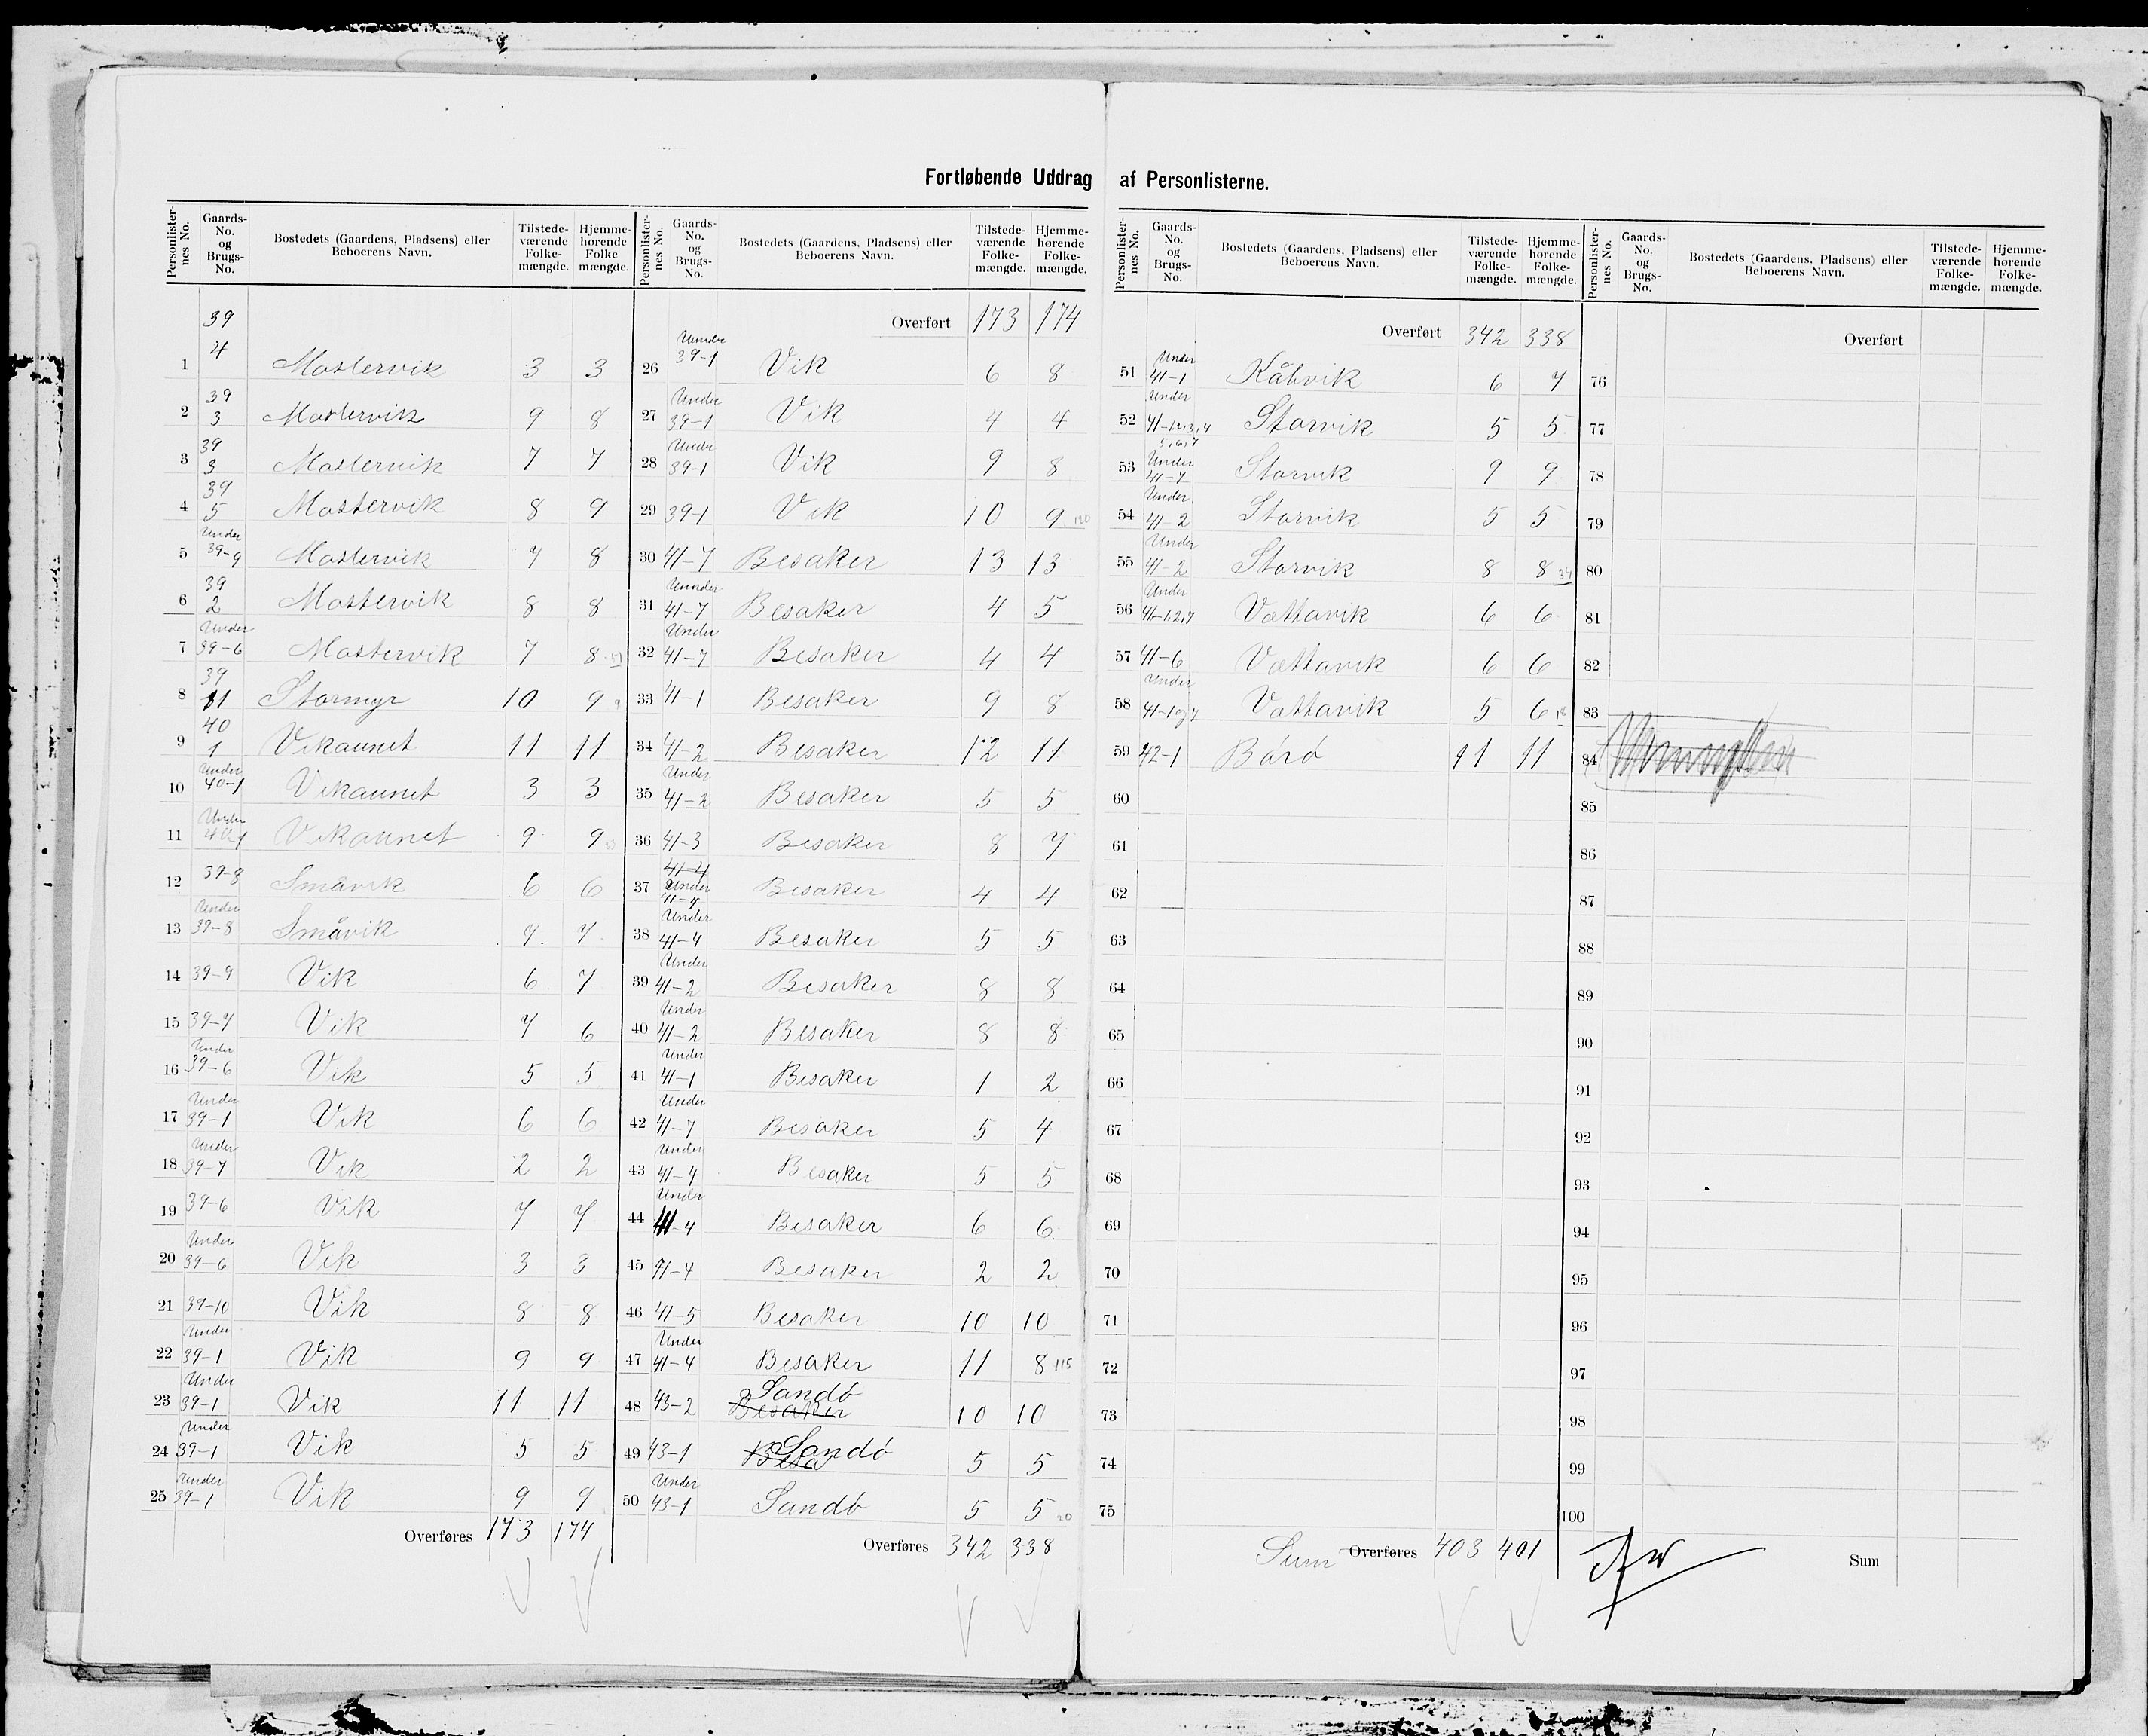 Fortløbende Uddrag af Personlisterne.
Personlister-nes No. Gaards-No. og Brugs-No. Bostedets (Gaardens, Pladsens) eller Beboerens Navn. Tilstede-værende Folke-mængde. Hjemme-hørende Folke mængde.
1 39 4 Mastervik 3 3
2 39 3 Mastervik 9 8
3 39 3 Mastervik 7 7
4 39 5 Mastervik 8 9
5 Under 39-9 Mastervik 7 8
6 39 2 Mastervik 8 8
7 Under 39-6 Mastervik 7 8
8 39 11 Stormyr 10 9
9 40 1 Vikaunet 11 11
10 Under 40-1 Vikaunet 3 3
11 Under 40-1 Vikaunet 9 9
12 39-8 Småvik 6 6
13 Under 39-8 Småvik 7 7
14 39-9 Vik 6 7
15 39-7 Vik 7 6
16 Under 39-6 Vik 5 5
17 Under 39-1 Vik 6 6
18 Under 39-7 Vik 2 2
19 39-6 Vik 7 7
20 Under 39-6 Vik 3 3
21 39-10 Vik 8 8
22 Under 39-1 Vik 9 9
23 Under 39-1 Vik 11 11
24 Under 39-1 Vik 5 5
25 Under 39-1 Vik 9 9
Overføres 173 174
Personlister-nes No. Gaards-No. og Brugs-No. Bostedets (Gaardens, Pladsens) eller Beboerens Navn. Tilstede-værende Folke-mængde. Hjemme-hørende Folke-mængde.
Overført 173 174
26 Under 39-1 Vik 6 8
27 Under 39-1 Vik 4 4
28 Under 39-1 Vik 9 8
29 39-1 Vik 10 9 120
30 41-7 Besaker 13 13
31 Under 41-7 Besaker 4 5
32 Under 41-7 Besaker 4 4
33 41-1 Besaker 9 8
34 41-2 Besaker 12 11
35 Under 41-2 Besaker 5 5
36 41-3 Besaker 8 7
37 41-4 Under 41-4 Besaker 4 4
38 Under 41-4 Besaker 5 5
39 Under 41-2 Besaker 8 8
40 Under 41-2 Besaker 8 8
41 Under 41-1 Besaker 1 2
42 Under 41-7 Besaker 5 4
43 Under 41-4 Besaker 5 5
44 Under 41-4 Besaker 6 6
45 41-4 Besaker 2 2
46 41-5 Besaker 10 10
47 Under 41-4 Besaker 11 8 115
48 43-2 Sandö Besaker 10 10
49 43-1 Besa Sandö 5 5
50 Under 43-1 Sandö 5 5 20
Overføres 342 338
Personlister-nes No. Gaards-No. og Brugs-No. Bostedets (Gaardens, Pladsens) eller Beboerens Navn. Tilstede-værende Folke-mængde. Hjemme-hørende Folke-mængde.
Overført 342 338
51 Under 41-1 Råhvik 6 7
52 Under 41-1,2,3,4 5,6,7 Storvik 5 5
53 Under 41-7 Storvik 9 9
54 Under 41-2 Storvik 5 5
55 Under 41-2 Storvik 8 8 34
56 Under 41-1,2,7 Vættavik 6 6
57 41-6 Vættavik 6 6
58 Under 41-1 og 7 Vættavik 5 6 18
59 42-1 Börö 11 11
60
61
62
63
64
65
66
67
68
69
70
71
72
73
74
75
Sum Overføres 403 401
Personlister-nes No. Gaards-No. og Brugs-No. Bostedets (Gaardens, Pladsens) eller Beboerens Navn. Tilstede-værende Folke-mængde. Hjemme-hørende Folke-mængde.
Overført
76
77
78
79
80
81
82
83
84
85
86
87
88
89
90
91
92
93
94
95
96
97
98
99
100
Sum